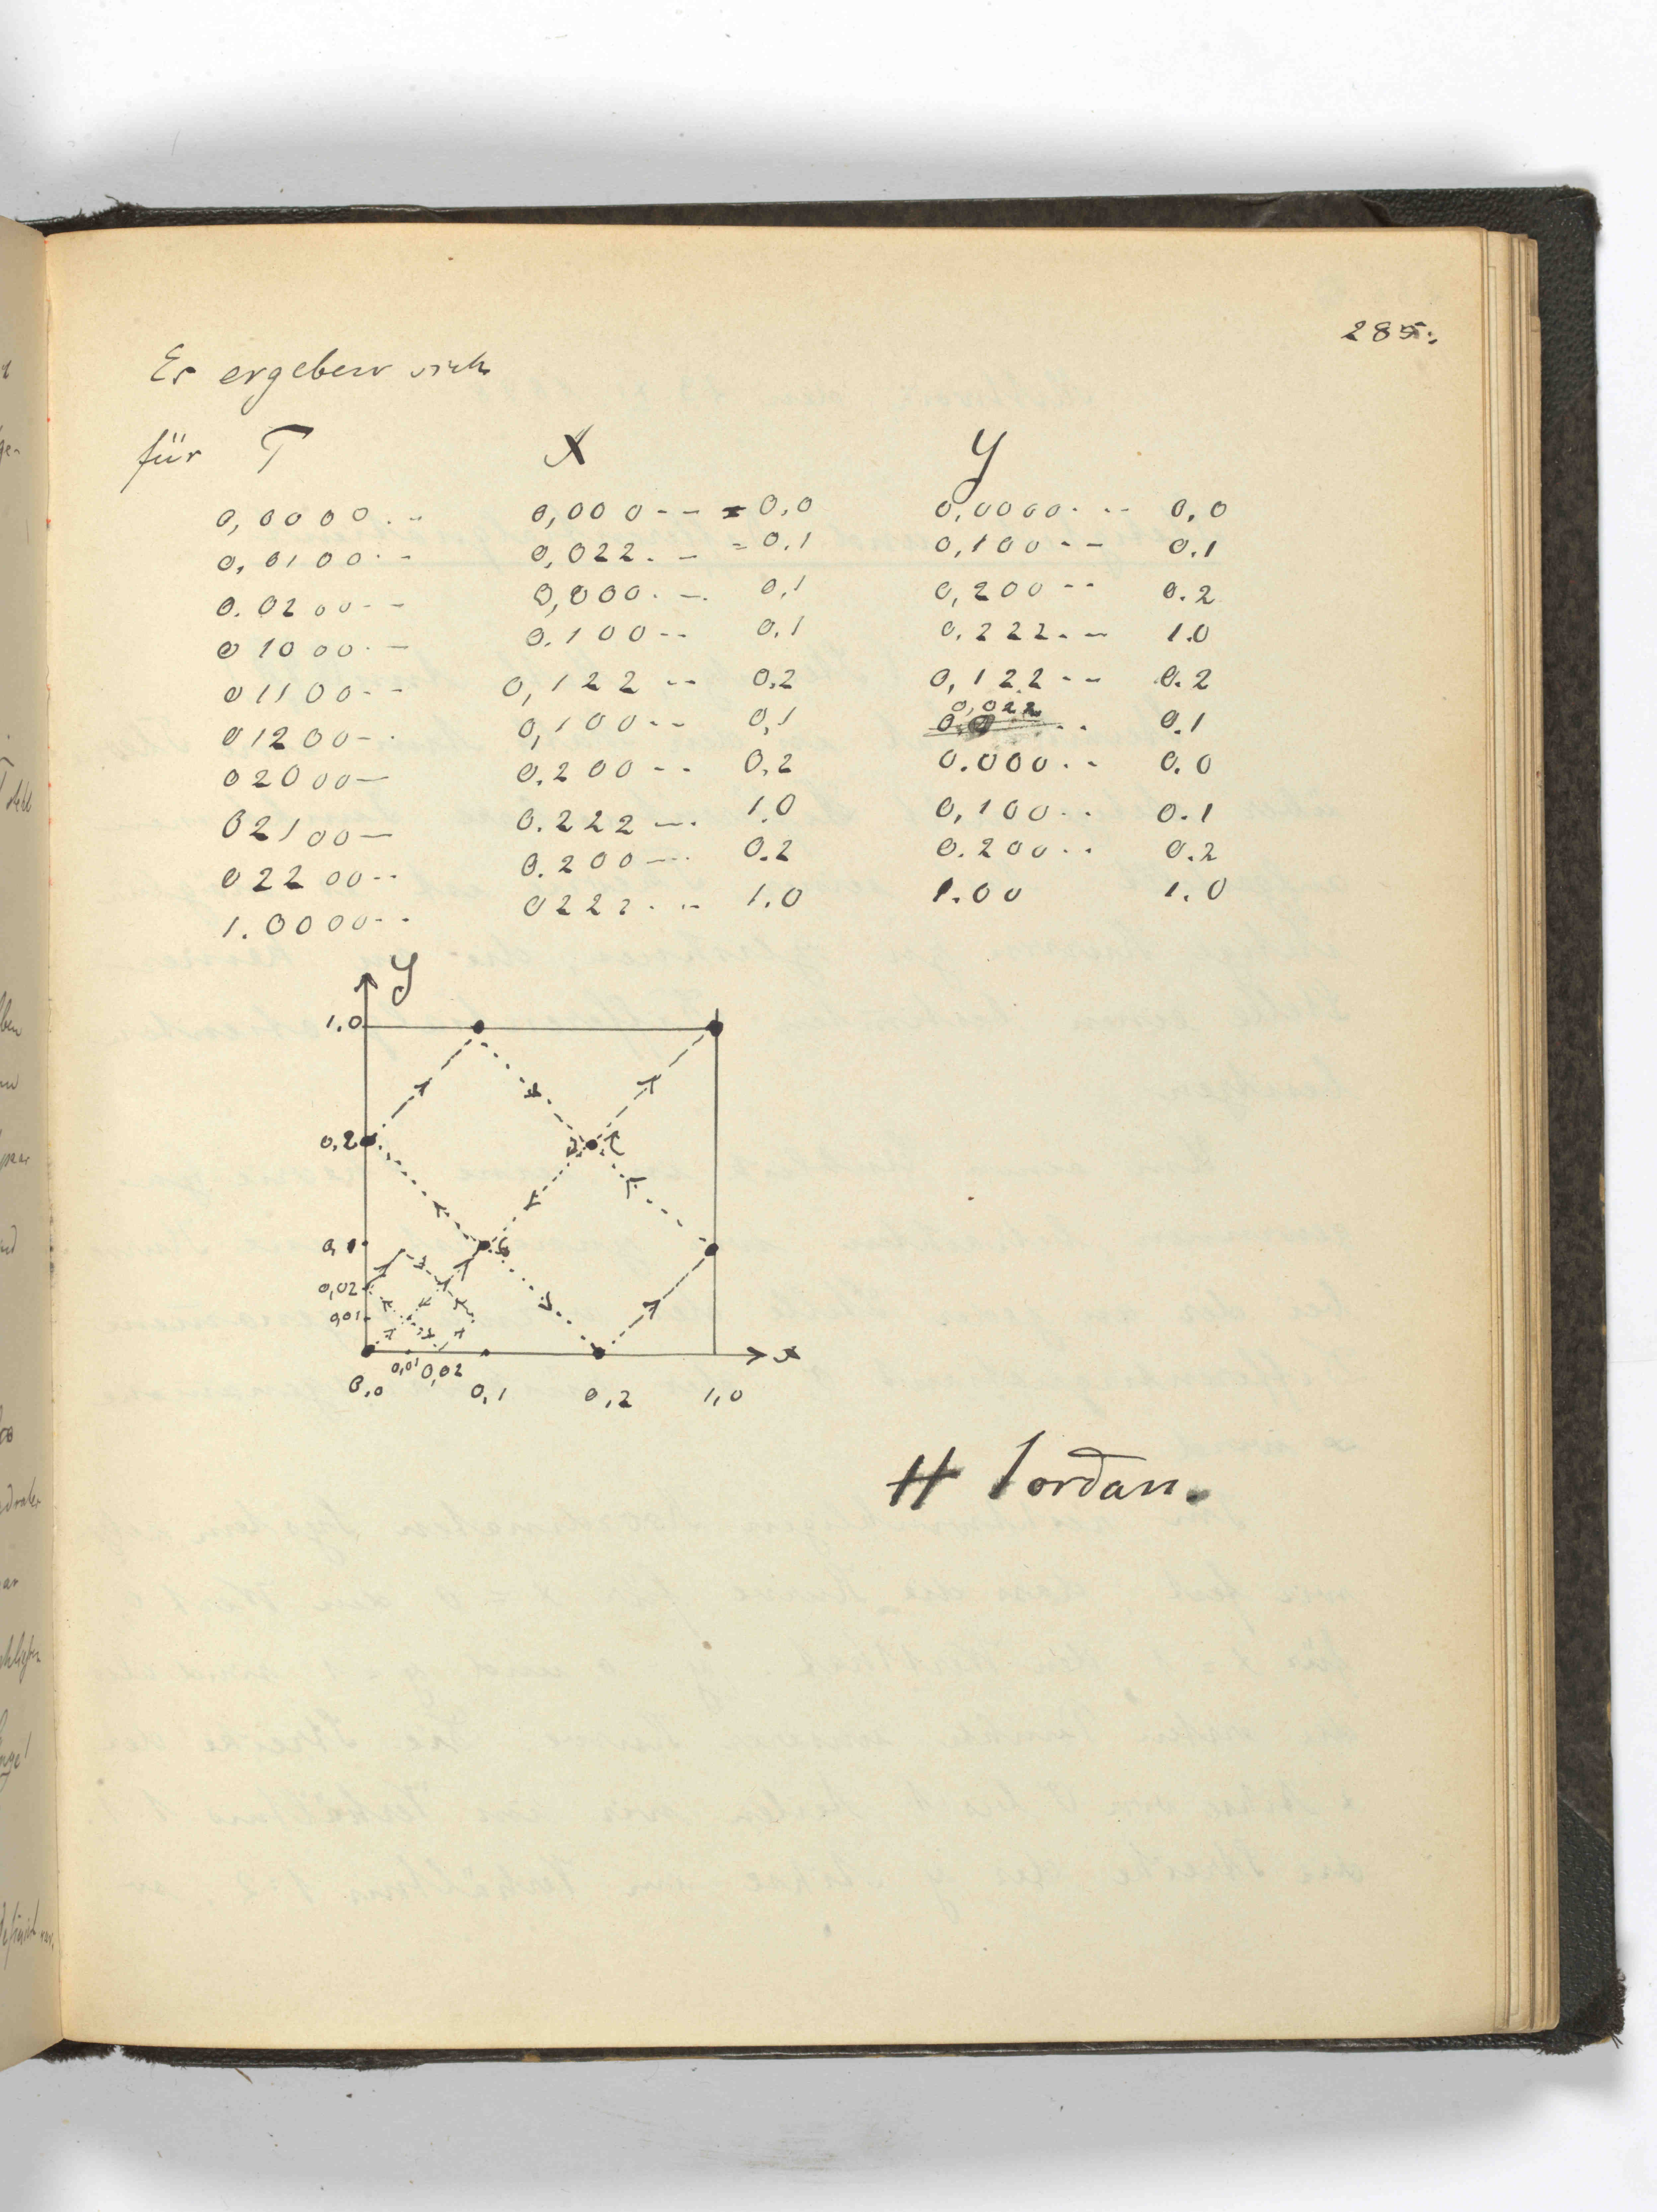 285.
Es ergeben sich
für T X Y
0,0000.-- 0,000--- = 0,0 0,0000.-- 0,0
0,0100.-- 0,022.-- = 0,1 0,100-- 0.1
0.0200-- 0,000.-. 0,1 0,200-- 0.2
01000.-- 0.100-- 0,1 0.222.-- 1.0
01100-- 0,122-- 0,2 0,122-- 0.2
01200-- 0,100-- 0,1 0,022.. 0.1
02000-- 0.200-- 0,2 0.000.. 0.0
02100-- 0.222-. 1.0 0,100.. 0.1
02200-- 0.200-- 0.2 0.200.. 0.2
1.0000-- 0222.-- 1.0 1.00 1.0
Y
1.0
0,2
0,1
0,02
0,01
0,01 0,02 x
0,0 0,1 0,2 1,0
H Jordan.